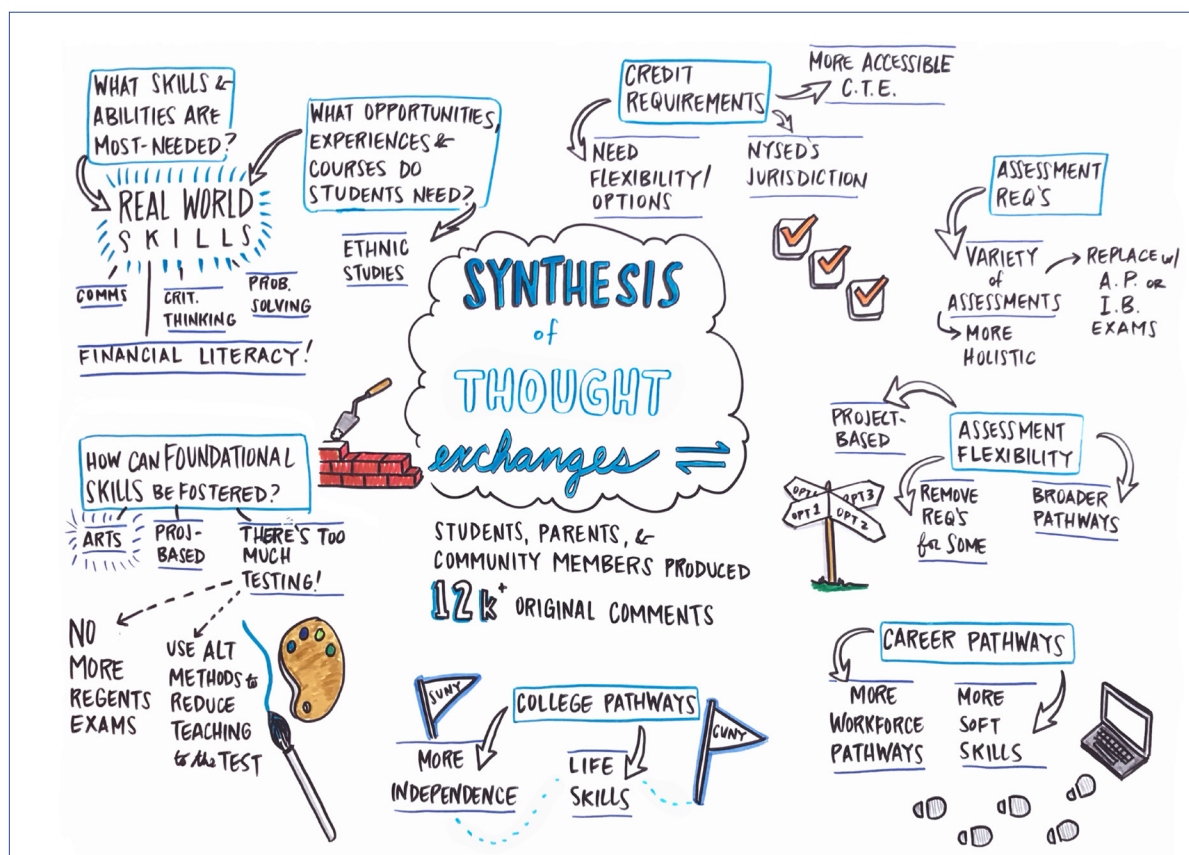 WHAT SKILLS &
ABILITIES ARE
MOST-NEEDED?
REAL WORLD
SKILLS
COMMS
CRIT.
THINKING
PROB.
SOLVING
FINANCIAL LITERACY!
WHAT OPPORTUNITIES,
EXPERIENCES &
COURSES DO
STUDENTS NEED?
ETHNIC
STUDIES
CREDIT
REQUIREMENTS
MORE ACCESSIBLE
C.T.E.
NEED
FLEXIBILITY/
OPTIONS
NYSED'S
JURISDICTION
ASSESSMENT
REQ'S
VARIETY
of
ASSESSMENTS
REPLACE w/
A.P. OR
I.B.
EXAMS
MORE
HOLISTIC
SYNTHESIS
of
THOUGHT
exchanges
STUDENTS, PARENTS, &
COMMUNITY MEMBERS PRODUCED
12k+ ORIGINAL COMMENTS
HOW CAN FOUNDATIONAL
SKILLS BE FOSTERED?
ARTS
PROJ-
BASED
THERE'S TOO
MUCH
TESTING!
NO
MORE
REGENTS
EXAMS
USE ALT
METHODS to
REDUCE
TEACHING
to the TEST
ASSESSMENT
FLEXIBILITY
PROJECT-
BASED
REMOVE
REQ'S
for SOME
BROADER
PATHWAYS
OPT 3
OPT 1
OPT 2
COLLEGE PATHWAYS
SUNY
CUNY
MORE
INDEPENDENCE
LIFE
SKILLS
CAREER PATHWAYS
MORE
WORKFORCE
PATHWAYS
MORE
SOFT
SKILLS